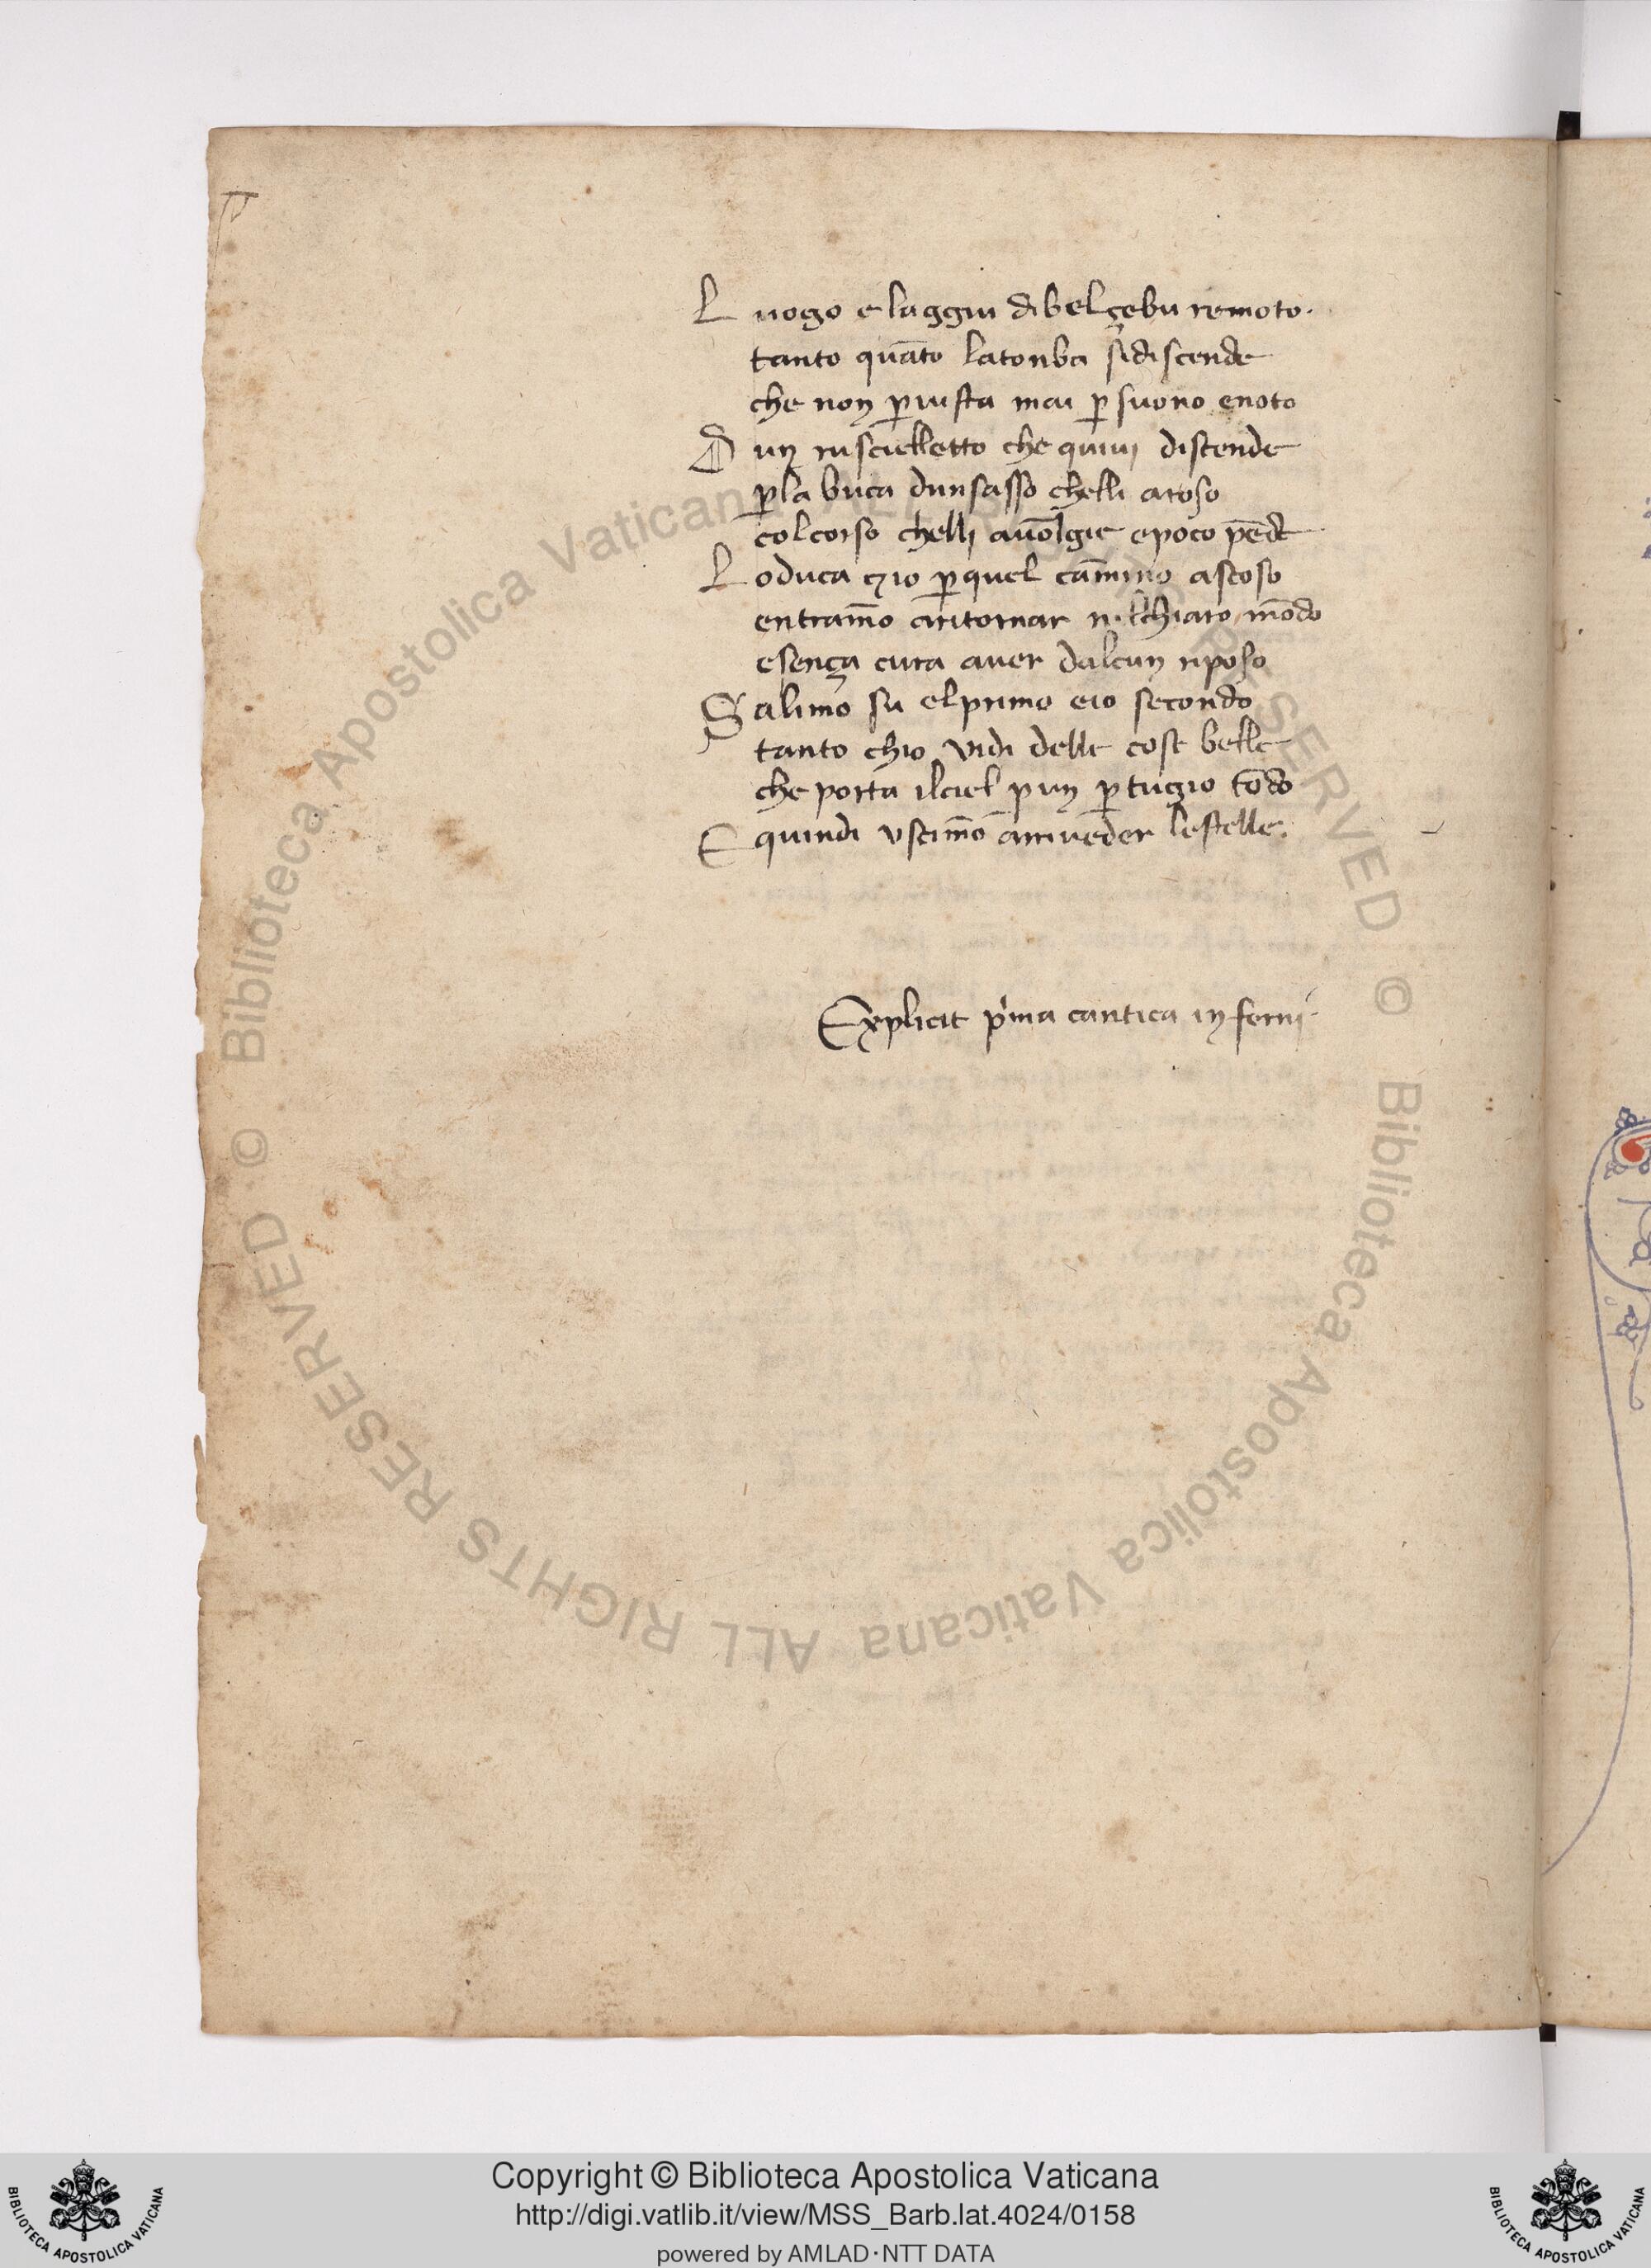 L uogo e laggiu di belçebu remoto.
tanto quāto latonba sidiscende
che non ꝑ uista mai ꝑ suono enoto
D un ruscielletto che quiui discende
ꝑla buca dunsasso chelli aroso
colcorso chelli auōlgie epoco pēde
L oduca ꞇio ꝑquel cāmino ascoso
entramo͞ aritornar nelchiaro mōdo
esença cura auer dalcun riposo
S alimo͞ su elprimo eio secondo
tanto chio vidi delle cose belle
che porta ilciel ꝑ un ꝑtugio tōdo
E quindi vscimo͞ ariueder lestelle.
Explicit pima cantica inferni.
© Biblioteca Apostolica Vaticana ALL RIGHTS RESERVED © Biblioteca Apostolica Vaticana ALL RIGHTS RESERVED
Copyright © Biblioteca Apostolica Vaticana
http://digi.vatlib.it/view/MSS_Barb.lat.4024/0158
powered by AMLAD·NTT DATA
BIBLIOTECA APOSTOLICA VATICANA
BIBLIOTECA APOSTOLICA VATICANA